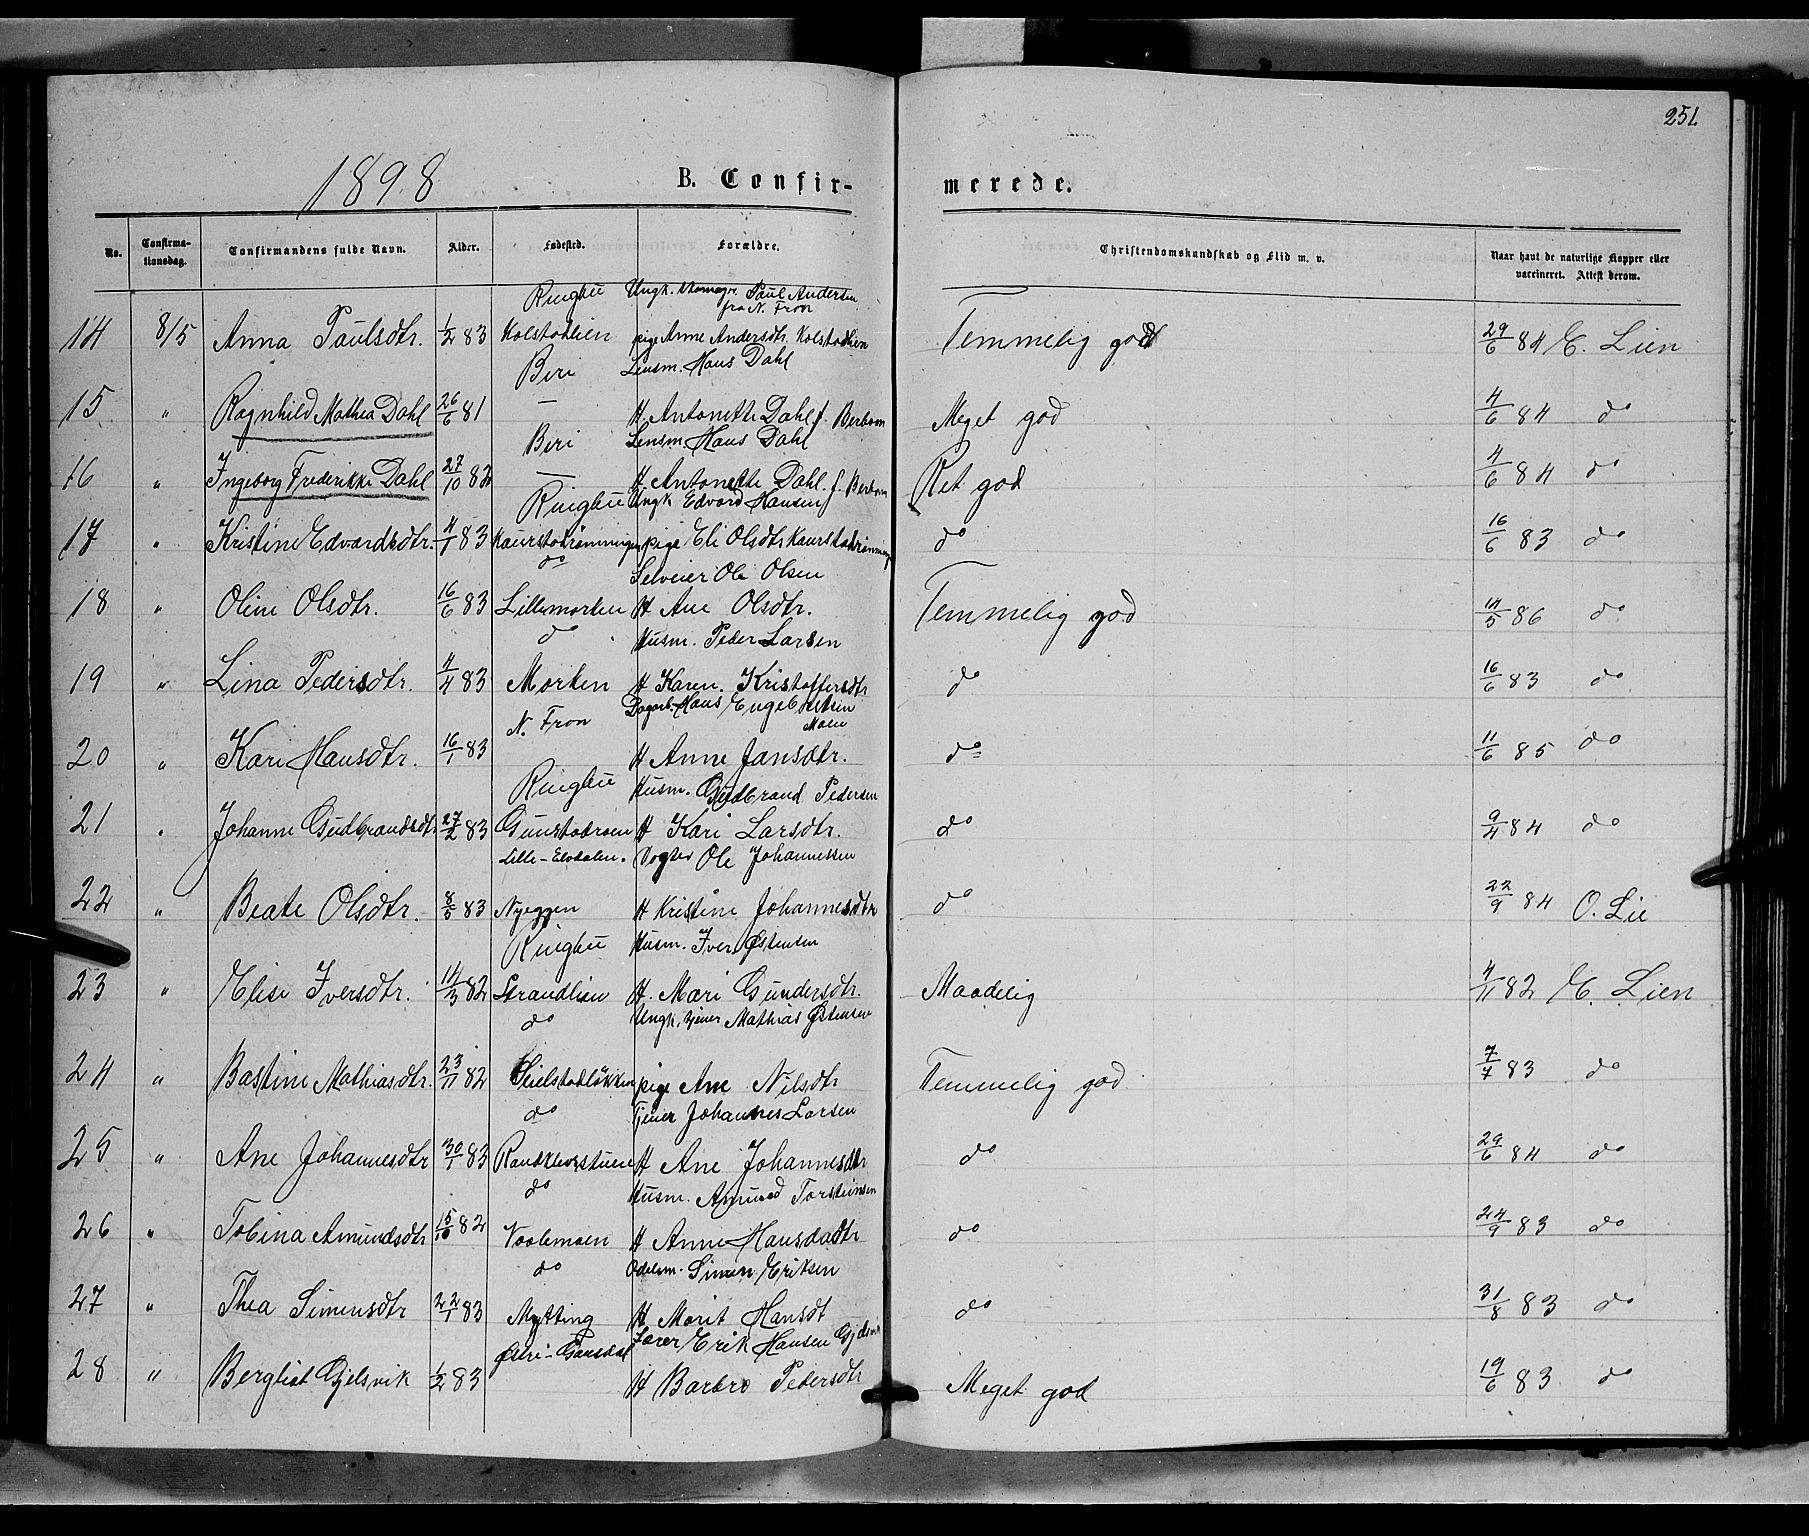 251
1898
B. Confir-
merede.
No.
Confirma-
tionsdag.
Confirmandens fulde Navn.
Alder.
Fødested.
Forældre.
Christendomskundskab og Flid m. v.
Naar havt de naturlige Kopper eller
vaccineret. Attest derom.
Ringbu Ungk. Paul Andersen
fra N. Fron
14 8/5 Anna Paulsdtr. 1/2 83 Kolstadlien pige Anne Andersdtr. Kolstadlien Temmelig god 29/6 84 E. Lien
Beri Lensm. Hans Dahl
15 " Ragnhild Mathea Dahl 26/6 81 — H Antonette Dahl f. Berbom Meget god 4/6 84 do
Beri Lensm Hans Dahl
16 " Ingeborg Frederikke Dahl 27/10 82 — H Antonette Dahl f. Berbom Ret god 4/6 84 do
Ringbu Ungk Edvard Hansen
17 " Kristine Edvardsdtr. 4/1 83 Kaurstadrømningen pige Eli Olsdtr Kaurstadrømning do 16/6 83 do
do Selveier Ole Olsen
18 " Oline Olsdtr. 16/6 83 Lillemorken H Ane Olsdtr. Temmelig god 14/5 86 do
do Husm. Peder Larsen
19 " Lina Pedersdtr. 4/4 83 Morken H Karen Kristoffersdtr do 16/6 83 do
N. Fron Dagarb. Hans Engebretsen
Moen
20 " Kari Hansdtr. 16/1 83 H Anne Jansdtr. do 11/6 85 do
Ringbu Husm. Gudbrand Pedersen
21 " Johanne Gudbrandsdtr 27/2 83 Gunstadmoen H Kari Larsdtr. do 9/4 84 do
Lille-Elvdalen. Vogter Ole Johannessen
22 " Beate Olsdtr. 8/5 83 Nyeggen H Kristine Johannesdtr do 22/9 84 O. Lie
Ringbu Husm. Iver Østensen
23 " Elise Iversdtr. 14/3 82 Strandlien H. Mari Gundersdtr. Maadelig 4/11 82 E. Lien
do Ungk. tjener Mathias Østensen
24 " Bastine Mathiasdtr. 23/11 82 Seielstadløkken pige Ane Nilsdtr Temmelig god 7/7 83 do
do Tjener Johannes Larsen
25 " Ane Johannesdtr 30/1 83 Randkleivstuene H Ane Johannesdtr do 29/6 84 do
do Husm. Amund Torsteinsen
26 " Tobina Amundsdtr 15/10 82 Vaalemoen H Anne Hansdadtr do 24/9 83 do
do Odelsm. Simen Eriksen
27 " Thea Simensdtr 22/1 83 Mykting H Marit Hansdt do 31/8 83 do
Østre-Gausdal Lærer Erik Hansen Gjelsvik
28 " Bergliot Gjelsvik 1/2 83 H Barbro Pedersdtr Meget god 19/6 83 do